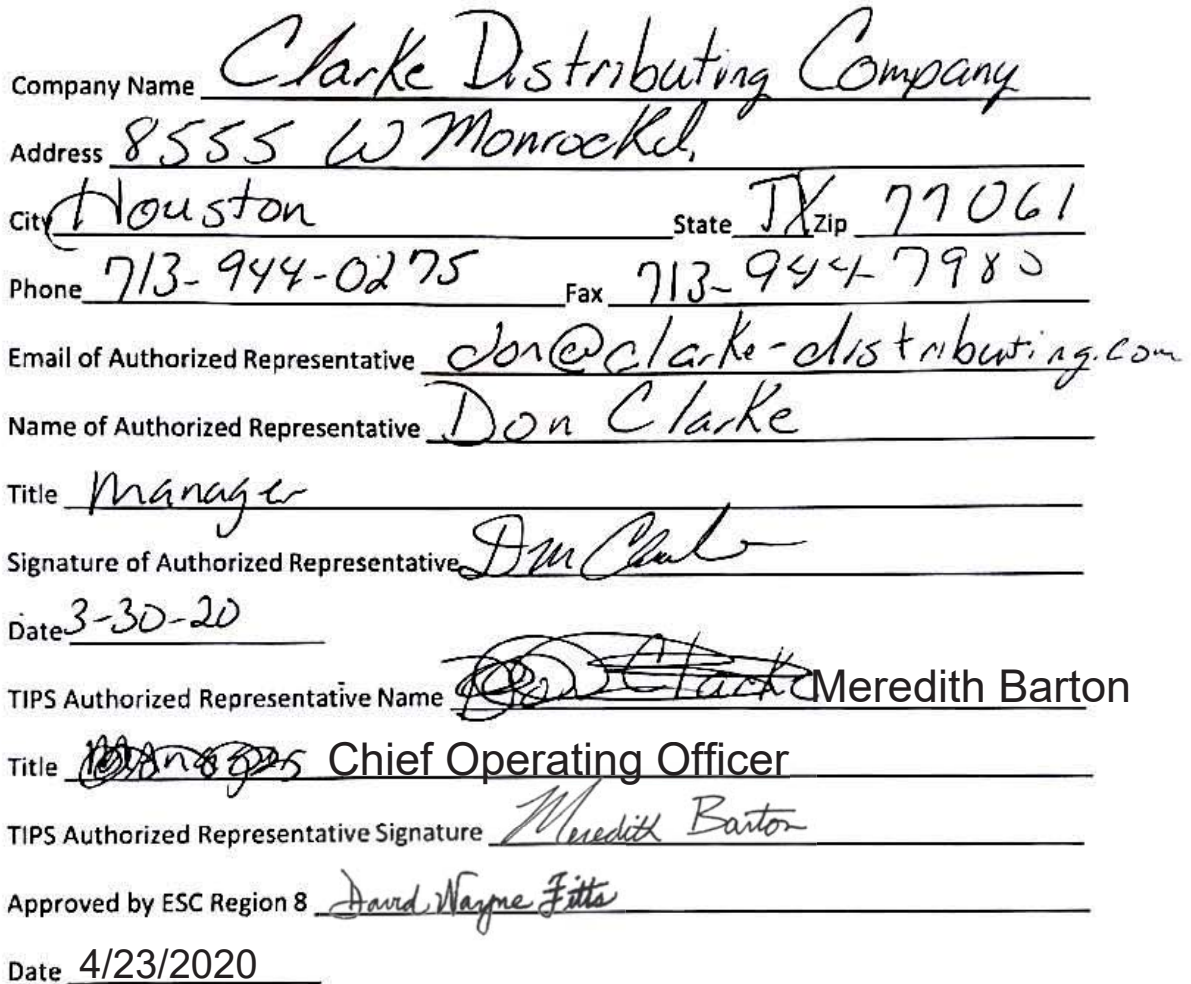 Company Name Clarke Distributing Company
Address 8555 W Monroe Rd.
City Houston State TX Zip 77061
Phone 713-944-0275 Fax 713-944-7980
Email of Authorized Representative don@clarke-distributing.com
Name of Authorized Representative Don Clarke
Title Manager
Signature of Authorized Representative Don Clarke
Date 3-30-20
TIPS Authorized Representative Name Don Clarke Meredith Barton
Title Manager Chief Operating Officer
TIPS Authorized Representative Signature Meredith Barton
Approved by ESC Region 8 David Wayne Fitts
Date 4/23/2020